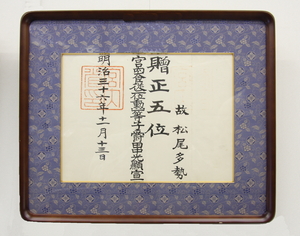 故松尾多勢
贈正五位
宮内大臣従二位勲一等子爵田中光顕宣
明治三十六年十一月十三日